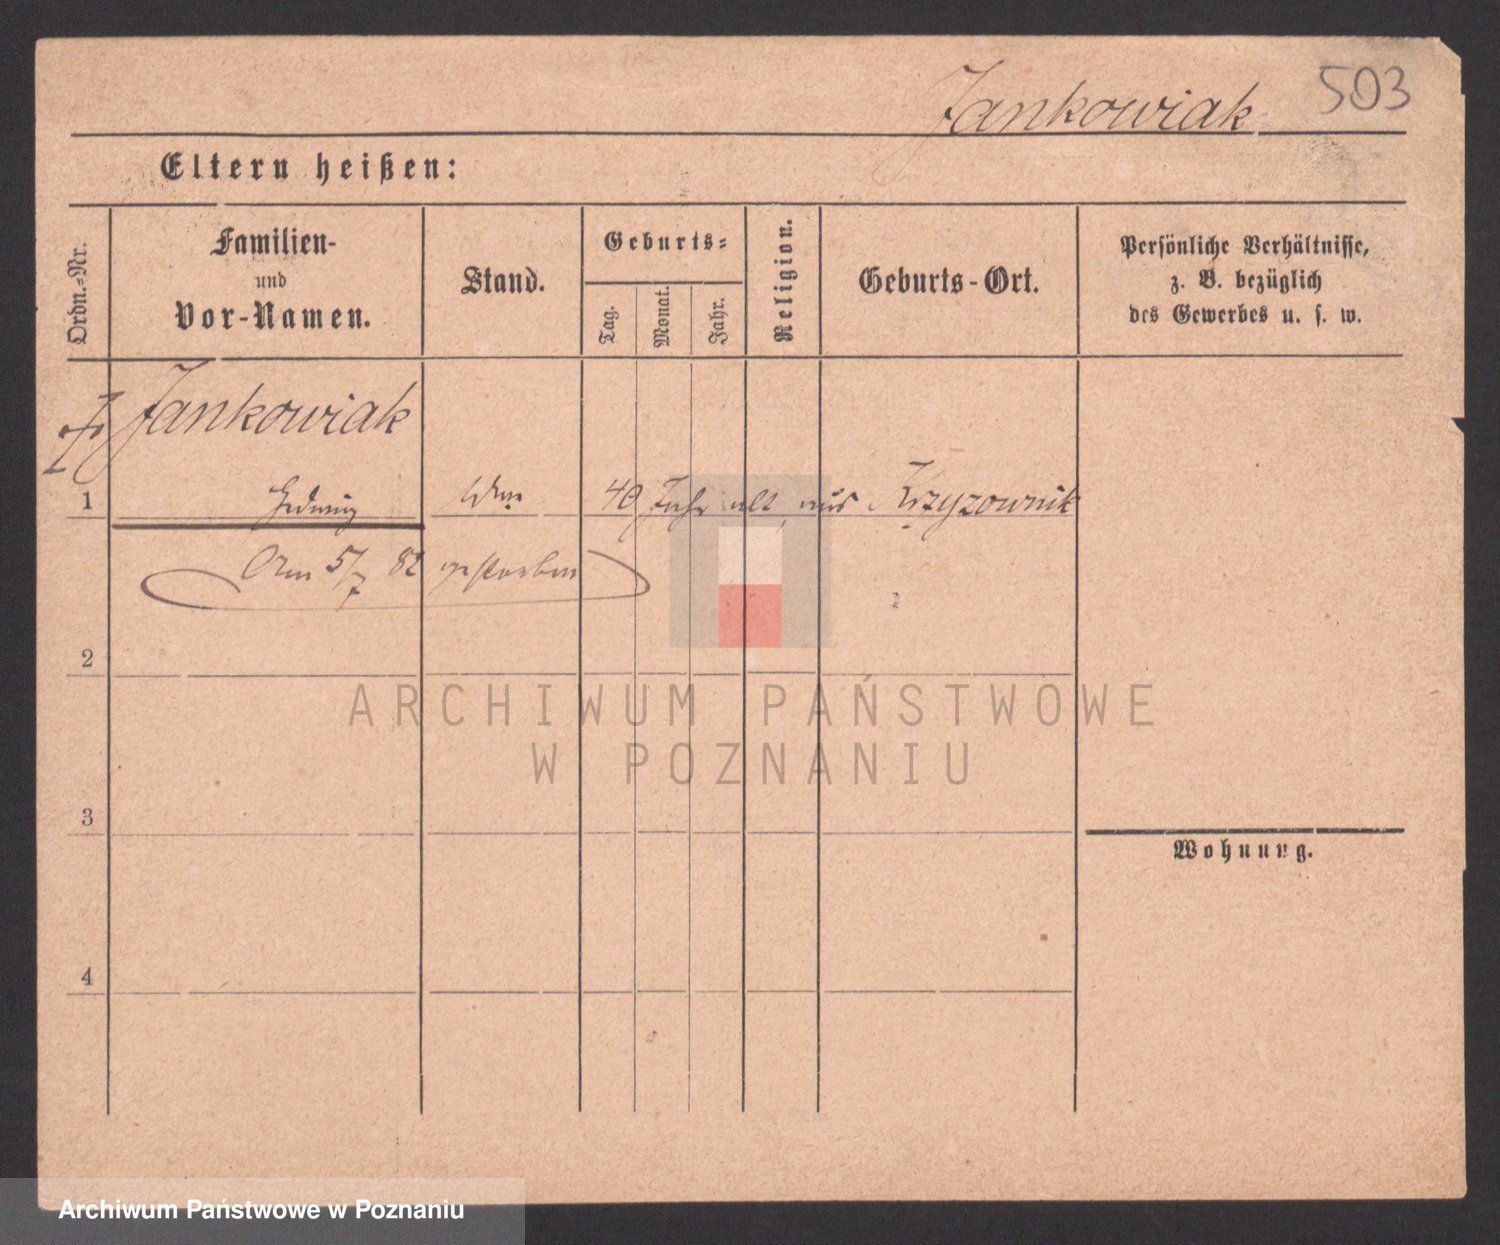 503
Jankowiak
Eltern heißen:
Ordn.-Nr.
Familien-
und
Vor-Namen.
Stand.
Geburts-
Tag.
Monat.
Jahr.
Religion.
Geburts-Ort.
Persönliche Verhältnisse,
z. B. bezüglich
des Gewerbes u. s. w.
Jankowiak
1 Hedwig Wwe 40 Jahr alt, aus Krzyzownik
Am 5/7 82 gestorben
2
ARCHIWUM PAŃSTWOWE
W POZNANIU
3
Wohnung.
4
Archiwum Państwowe w Poznaniu